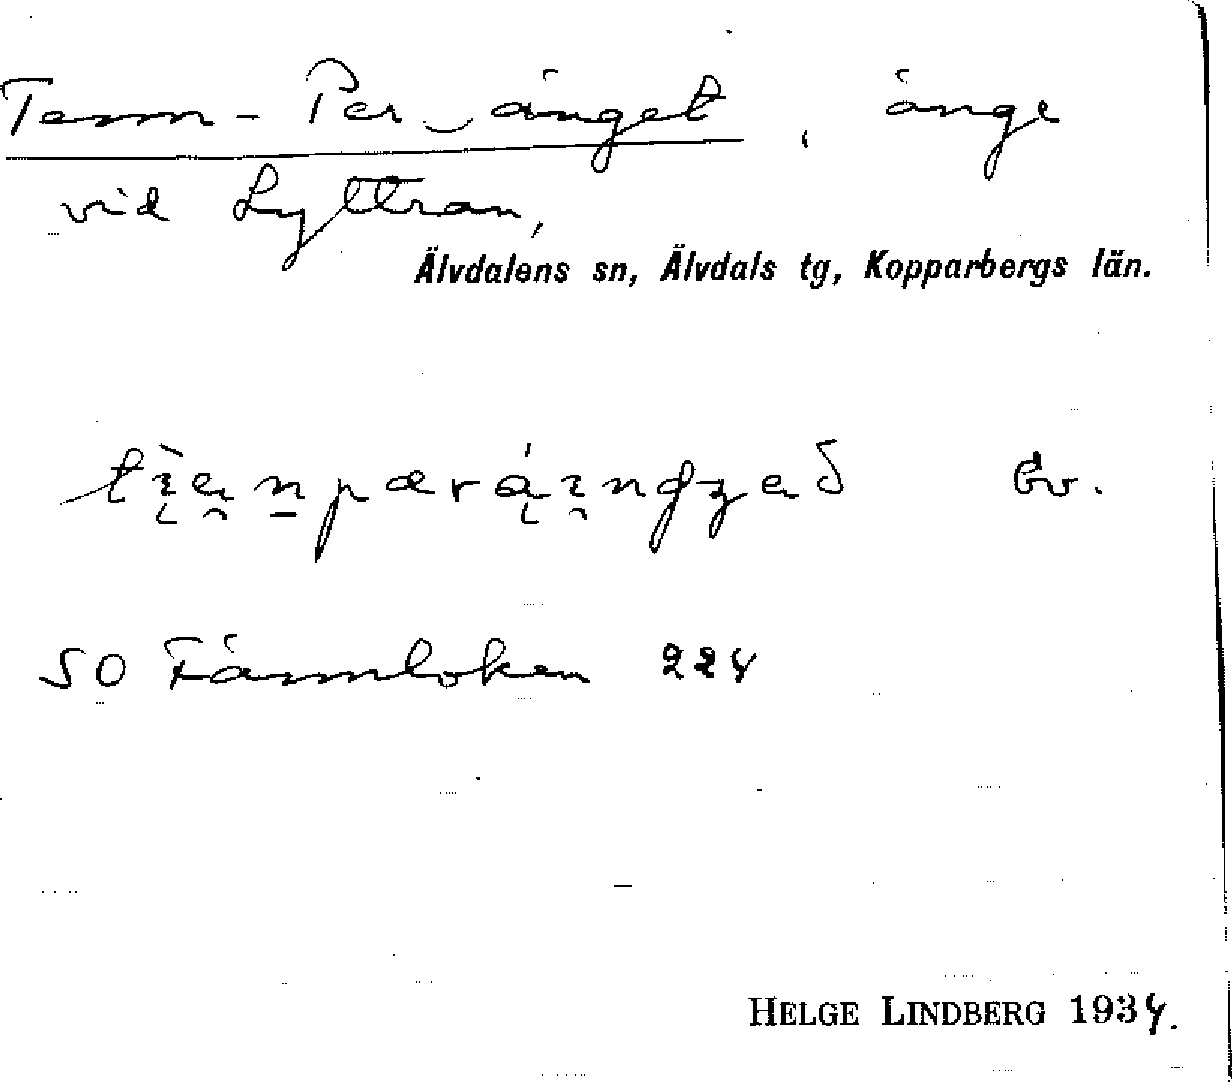 Tenn-Per-änget, änge
vid Lyttran,
Älvdalens sn, Älvdals tg, Kopparbergs län.
Ev.
SO Fännloken 224
HELGE LINDBERG 1934.